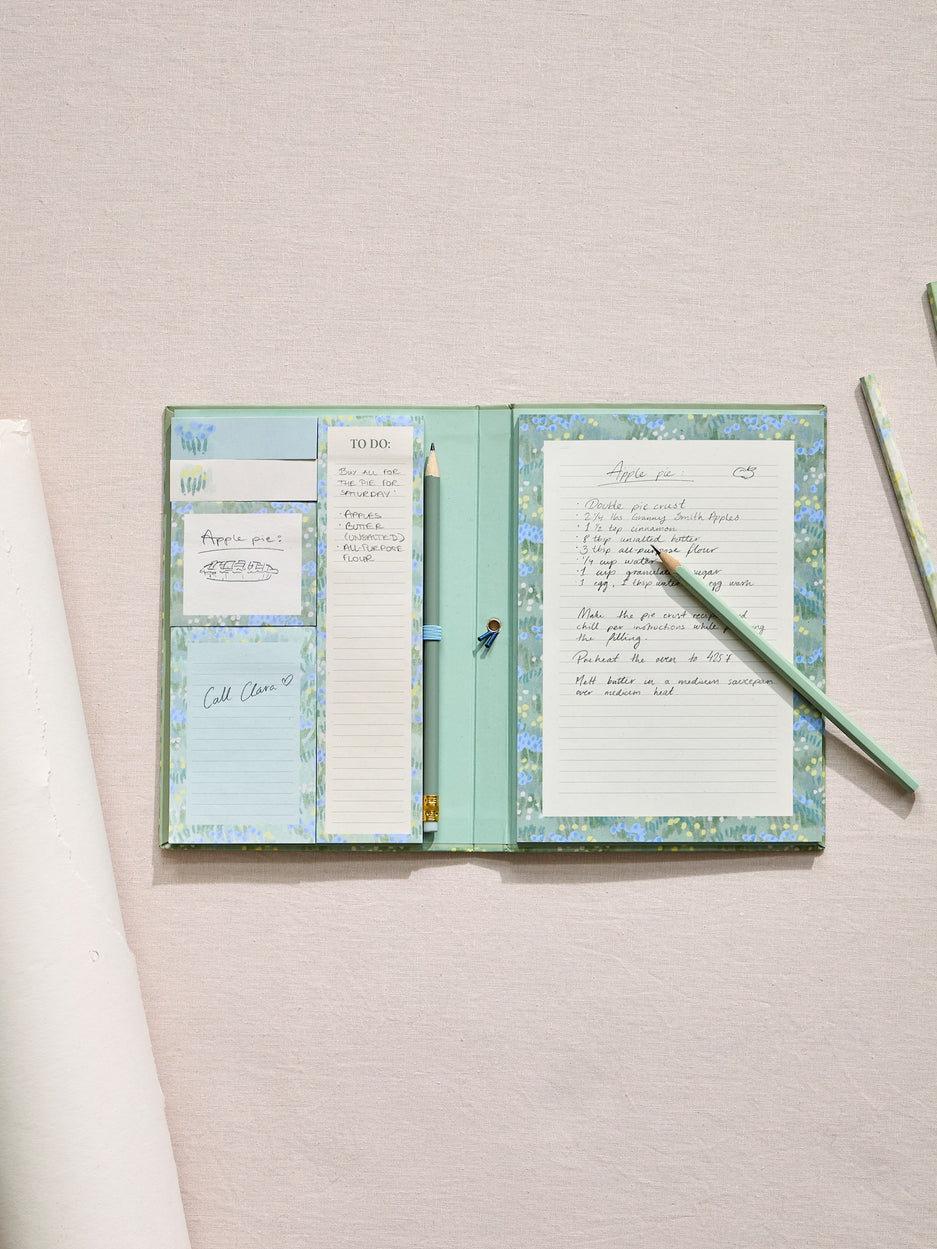 Apple pie:
Call Clara
TO DO:
BUY ALL FOR
THE PIE FOR
SATURDAY:
· APPLES
· BUTTER
(UNSALTED)
· ALL-PURPOSE
FLOUR
Apple pie:
· Double pie crust
· 2 1/4 lbs Granny Smith Apples
· 1 1/2 tsp cinnamon
· 8 tbsp unsalted butter
· 3 tbsp all-purpose flour
· 1/4 cup water
· 1 cup granulated sugar
· 1 egg, 1 tbsp water egg wash
Make the pie crust and
chill per instructions while
the filling.
Preheat the oven to 425 F
Melt butter in a medium saucepan
over medium heat